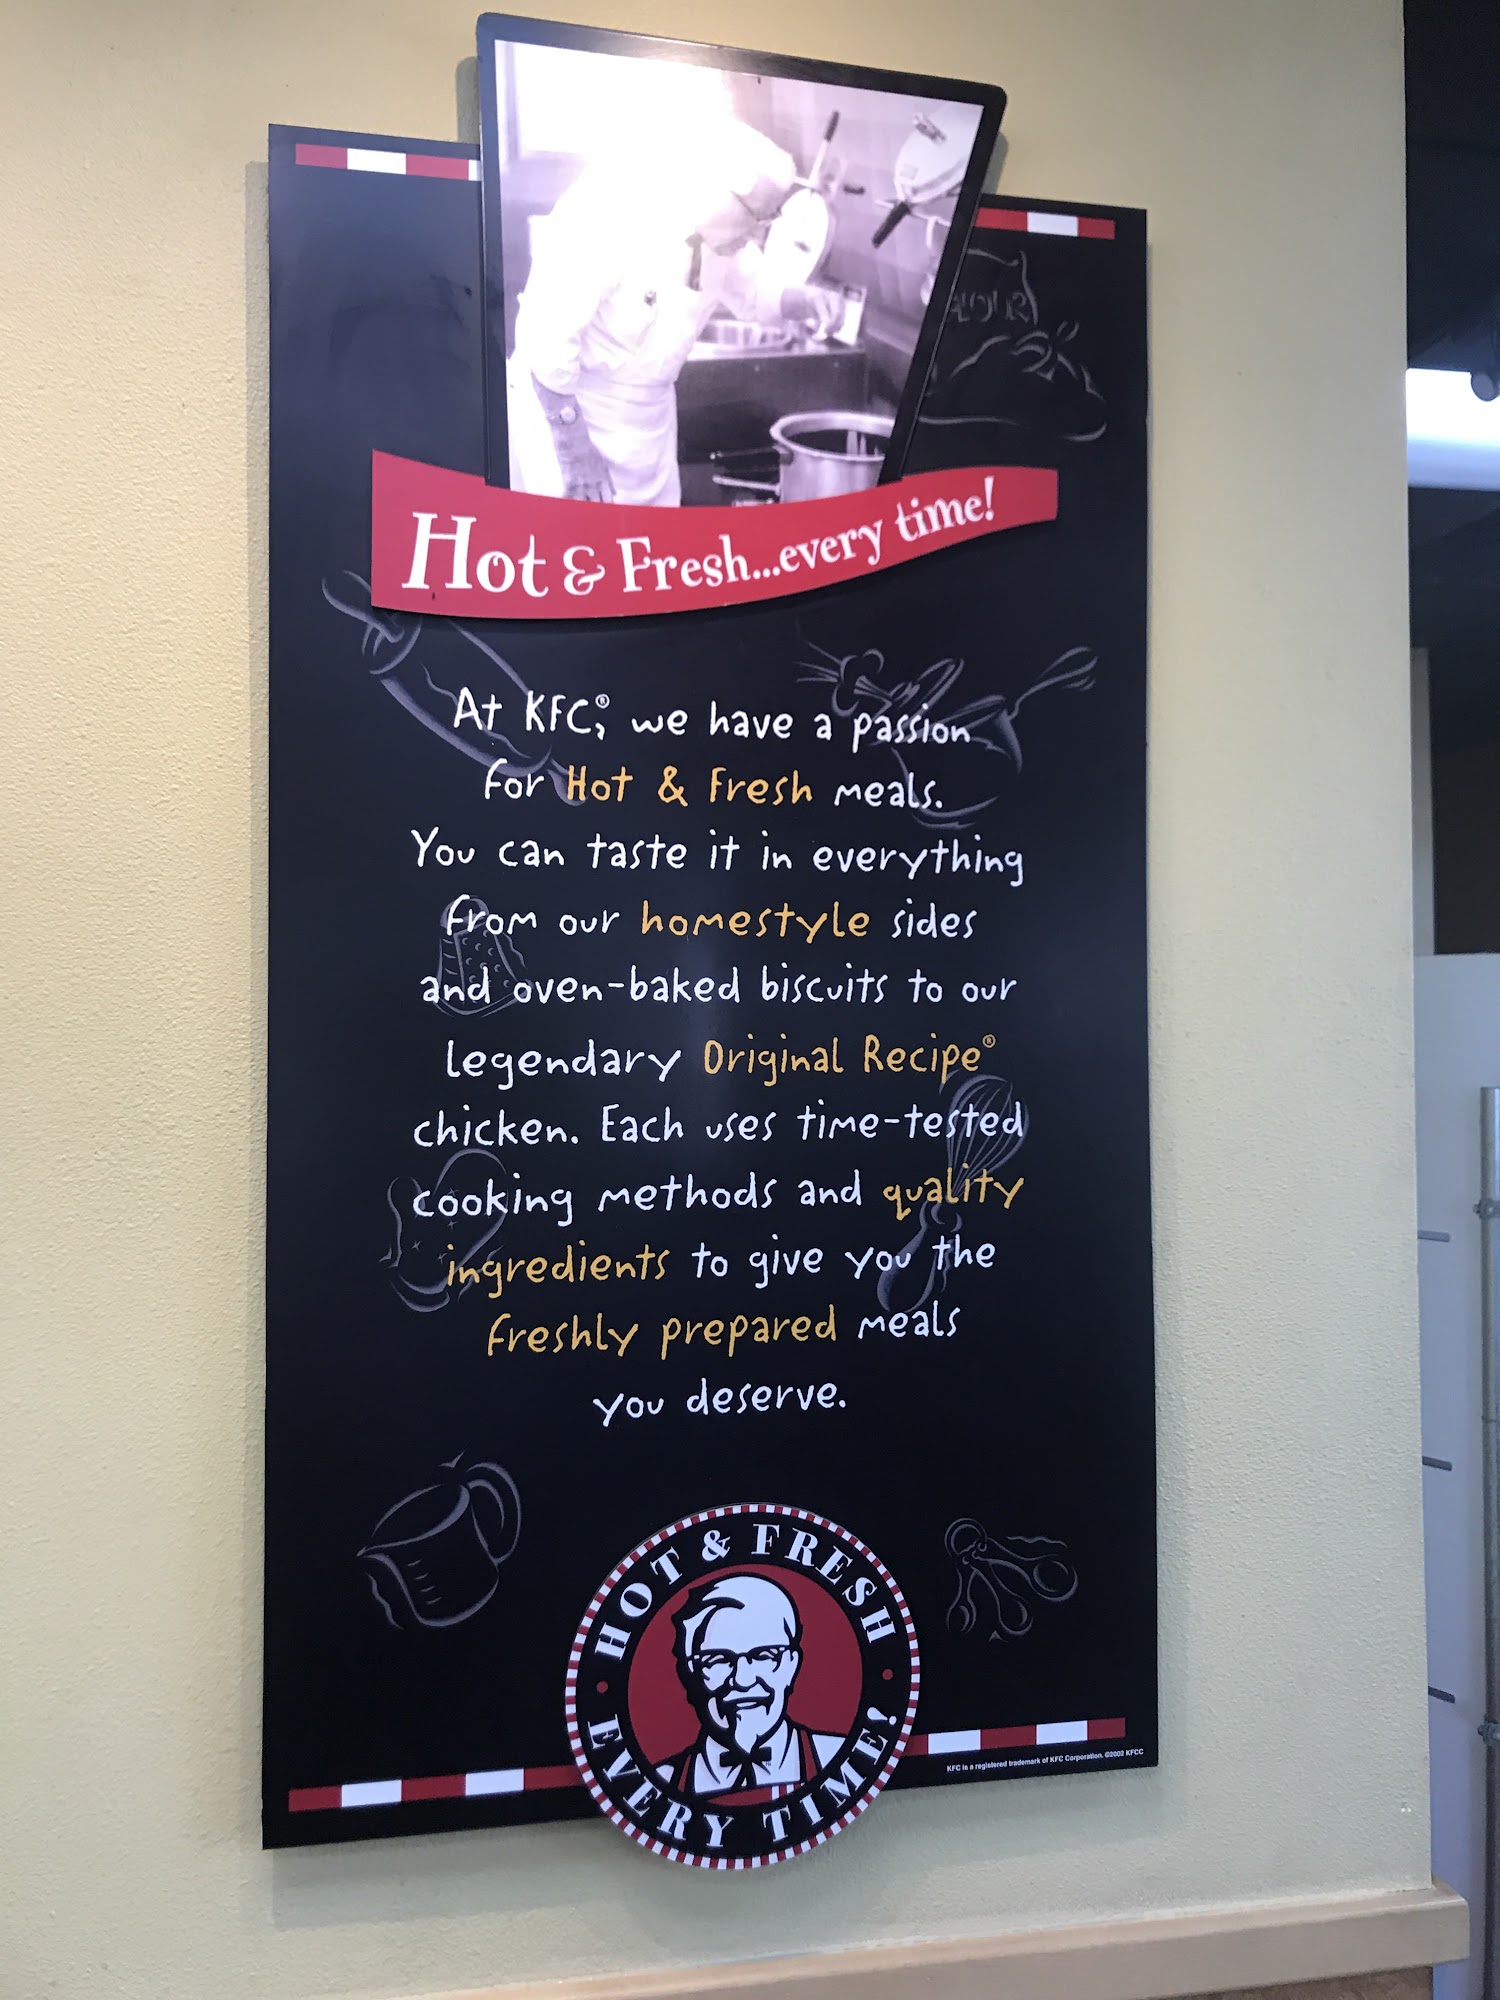 FLOUR
Hot & Fresh...every time!
At KFC®, we have a passion
for Hot & Fresh meals.
You can taste it in everything
from our homestyle sides
and oven-baked biscuits to our
legendary Original Recipe®
chicken. Each uses time-tested
cooking methods and quality
ingredients to give you the
freshly prepared meals
you deserve.
HOT & FRESH
EVERY TIME!
KFC is a registered trademark of KFC Corporation. ©2002 KFCC